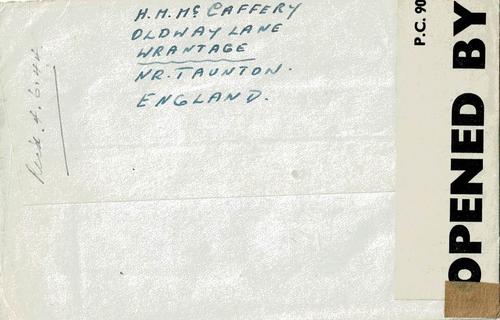 H. M. McCAFFERY
OLDWAY LANE
WRANTAGE
NR. TAUNTON.
ENGLAND.
P.C. 90
OPENED BY